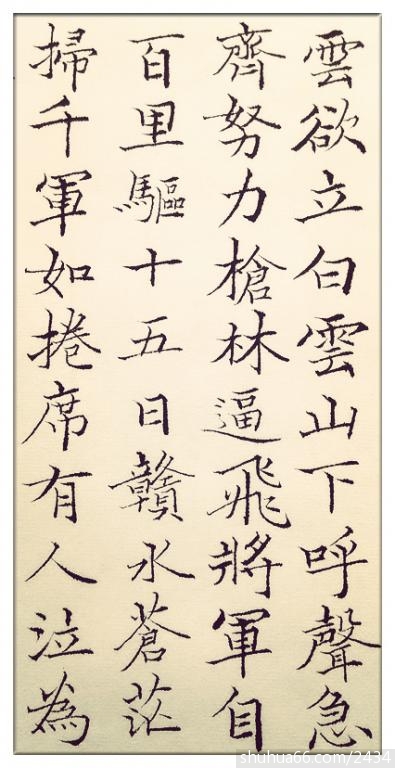 雲欲立白雲山下呼聲急
齊努力槍林逼飛將軍自
百里驅十五日贛水蒼茫
掃千軍如捲席有人泣為
shuhua66.com/2434